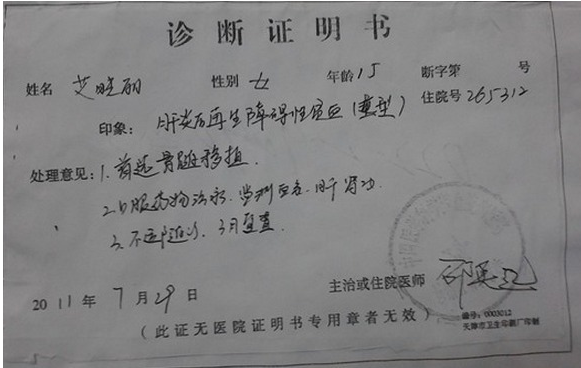 诊断证明书
姓名 艾晓丽 性别 女 年龄 15 断字第 号
住院号 265312
印象: 肝炎后再生障碍性贫血(重型)
处理意见: 1. 首选骨髓移植.
2. 口服药物治疗. 肝肾功
3. 不适随诊. 3月复查.
主治或住院医师
2011年7月29日
(此证无医院证明书专用章者无效)
编号: 0003012
天津市卫生印刷厂印制